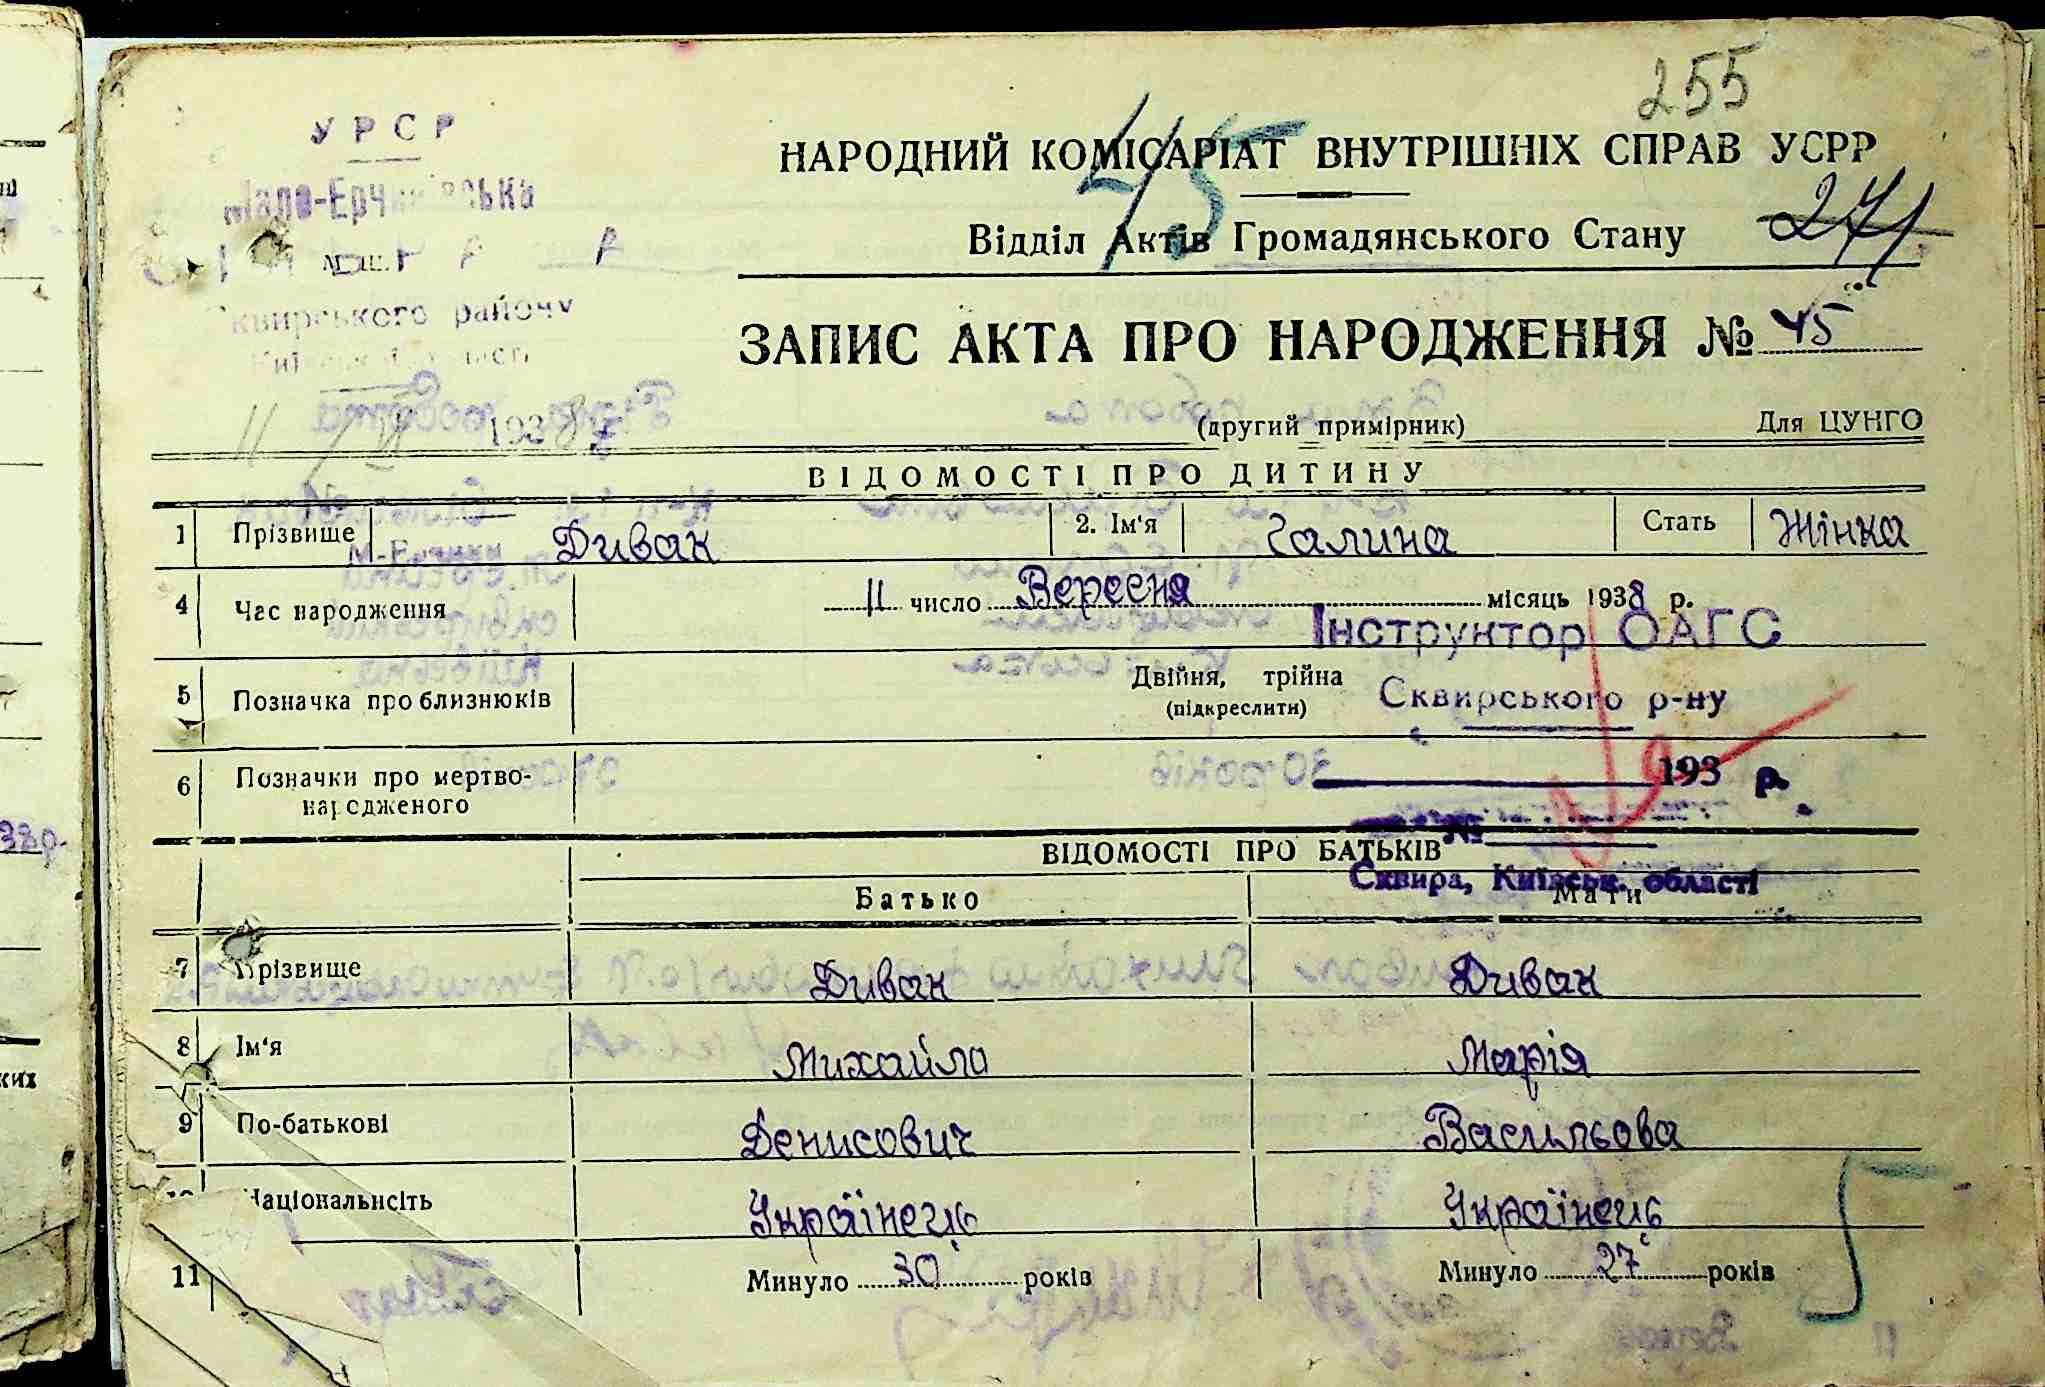 255
УРСР
Мало-Ерчиківська
Сквирського району
НАРОДНИЙ КОМІСАРІАТ ВНУТРІШНІХ СПРАВ УСРР
45
271
Відділ Актів Громадянського Стану
ЗАПИС АКТА ПРО НАРОДЖЕННЯ № 45
11 / VI 1938
(другий примірник) Для ЦУНГО
ВІДОМОСТІ ПРО ДИТИНУ
1 Прізвище Дивак 2. Ім'я Галина Стать Жінка
4 Час народження 11 число Вересня місяць 1938 р.
Інструктор ОАГС
5 Позначка про близнюків Двійня, трійна
(підкреслити)
Сквирського р-ну
6 Позначки про мертво-
народженого
193 р.
№
ВІДОМОСТІ ПРО БАТЬКІВ
Сквира, Київськ. області
Батько Мати
7 Прізвище Дивак Дивак
8 Ім'я Михайло Марія
9 По-батькові Денисович Васильова
Національнсіть Українець Українець
11 Минуло 30 років Минуло 27 років
5